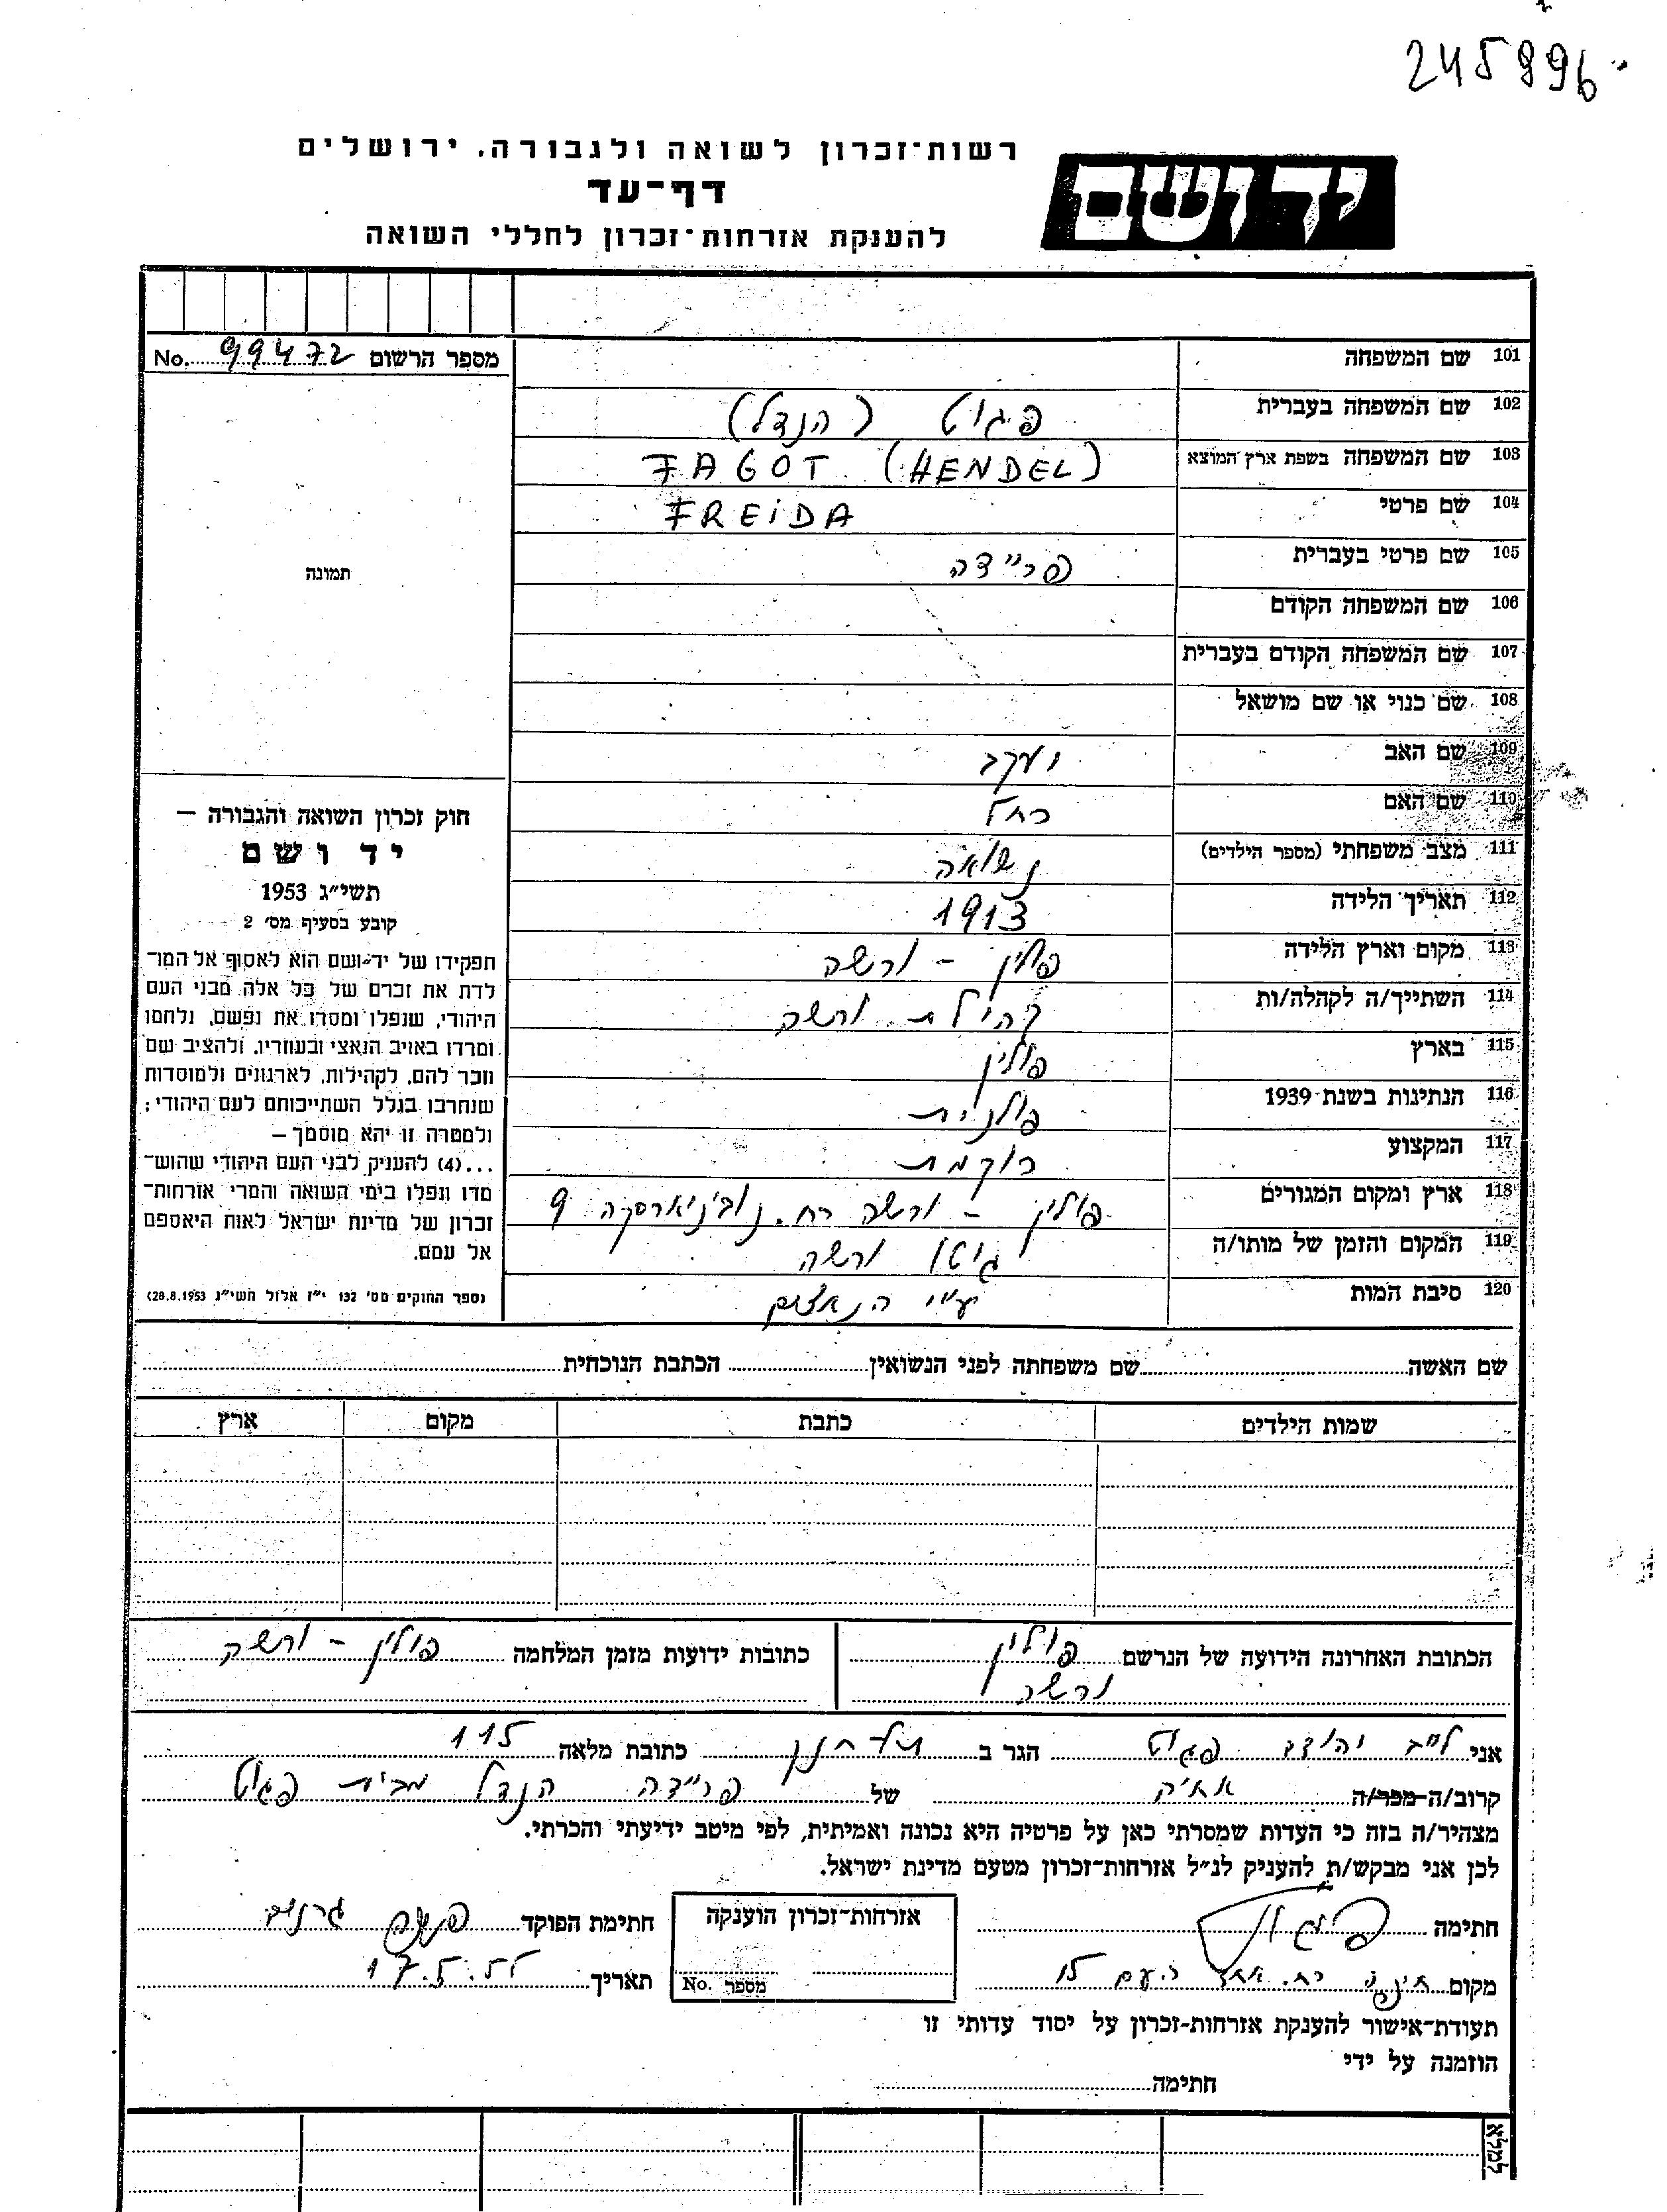 245996
רשות־זכרון לשואה ולגבורה, ירושלים
יד ושם
דף־עד
להענקת אזרחות־זכרון לחללי השואה
מספר הרשום 99472 No.
101 שם המשפחה
102 שם המשפחה בעברית פגוט (הנדל)
103 שם המשפחה בשפת ארץ המוצא FAGOT (HENDEL)
104 שם פרטי FREIDA
105 שם פרטי בעברית פריידה
106 שם המשפחה הקודם
107 שם המשפחה הקודם בעברית
108 שם כנוי או שם מושאל
109 שם האב יעקב
110 שם האם רחל
111 מצב משפחתי (מספר הילדים) נשואה
112 תאריך הלידה 1913
113 מקום וארץ הלידה פולין - ורשה
114 השתייך/ה לקהלה/ות קהילת ורשה
115 בארץ פולין
116 הנתינות בשנת 1939 פולנית
117 המקצוע רוקמת
118 ארץ ומקום המגורים פולין - ורשה רח. נובינירסקה 9
119 המקום והזמן של מותו/ה גיטו ורשה
120 סיבת המות ע"י הנאצים
תמונה
חוק זכרון השואה והגבורה –
יד ושם
תשי״ג 1953
קובע בסעיף מס׳ 2
תפקידו של יד־ושם הוא לאסוף אל המו־
לדת את זכרם של כל אלה מבני העם
היהודי, שנפלו ומסרו את נפשם, נלחמו
ומרדו באויב הנאצי ובעוזריו, ולהציב שם
וזכר להם, לקהילות, לארגונים ולמוסדות
שנחרבו בגלל השתייכותם לעם היהודי;
ולמטרה זו יהא מוסמך –
...(4) להעניק לבני העם היהודי שהוש־
מדו ונפלו בימי השואה והמרי אזרחות־
זכרון של מדינת ישראל לאות היאספם
אל עמם.
(ספר החוקים מס׳ 132 י״ז אלול תשי״ג 28.8.1953)
שם האשה שם משפחתה לפני הנשואין הכתבת הנוכחית
שמות הילדים כתבת מקום ארץ
הכתובת האחרונה הידועה של הנרשם פולין
ורשה
כתובות ידועות מזמן המלחמה פולין - ורשה
אני לייב יהודה פגוט הגר ב תל חנן כתובת מלאה 115
קרוב/ה־מכר/ה אחיה של פריידה הנדל מבית פגוט
מצהיר/ה בזה כי העדות שמסרתי כאן על פרטיה היא נכונה ואמיתית, לפי מיטב ידיעתי והכרתי.
לכן אני מבקש/ת להעניק לנ״ל אזרחות־זכרון מטעם מדינת ישראל.
חתימה פגוט
אזרחות־זכרון הוענקה
מספר No.
חתימת הפוקד
מקום חיפה רח. אחד העם 15
תאריך 17.5.55
תעודת־אישור להענקת אזרחות־זכרון על יסוד עדותי זו
הוזמנה על ידי
חתימה